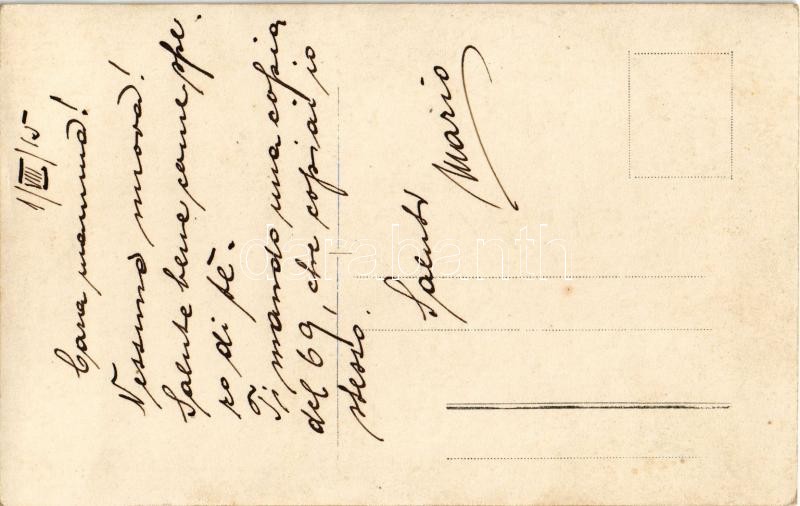 1/VIII/15
Cara mamma!
Nessuna nuova!
Salute bene come spe-
ro di tè.
Ti mando una copia
del 69, che copiai io
stesso.
Saluti
Mario
darabanth